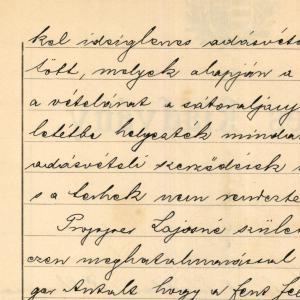 kel ideiglenes adásvéte
tött, melyek alapján a
a vételárat a sátoraljauj
letétbe helyezték mindad
adásvételi szerződések
s a terhek nem rendezte
Lajosné szüle
czen meghatalmazással
gar Antalt hogy a fent jeg